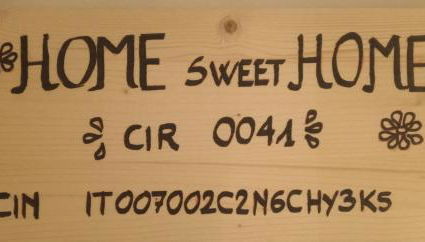 HOME SWEET HOME
CIR 0041
CIN IT007002C2N6CHY3K5